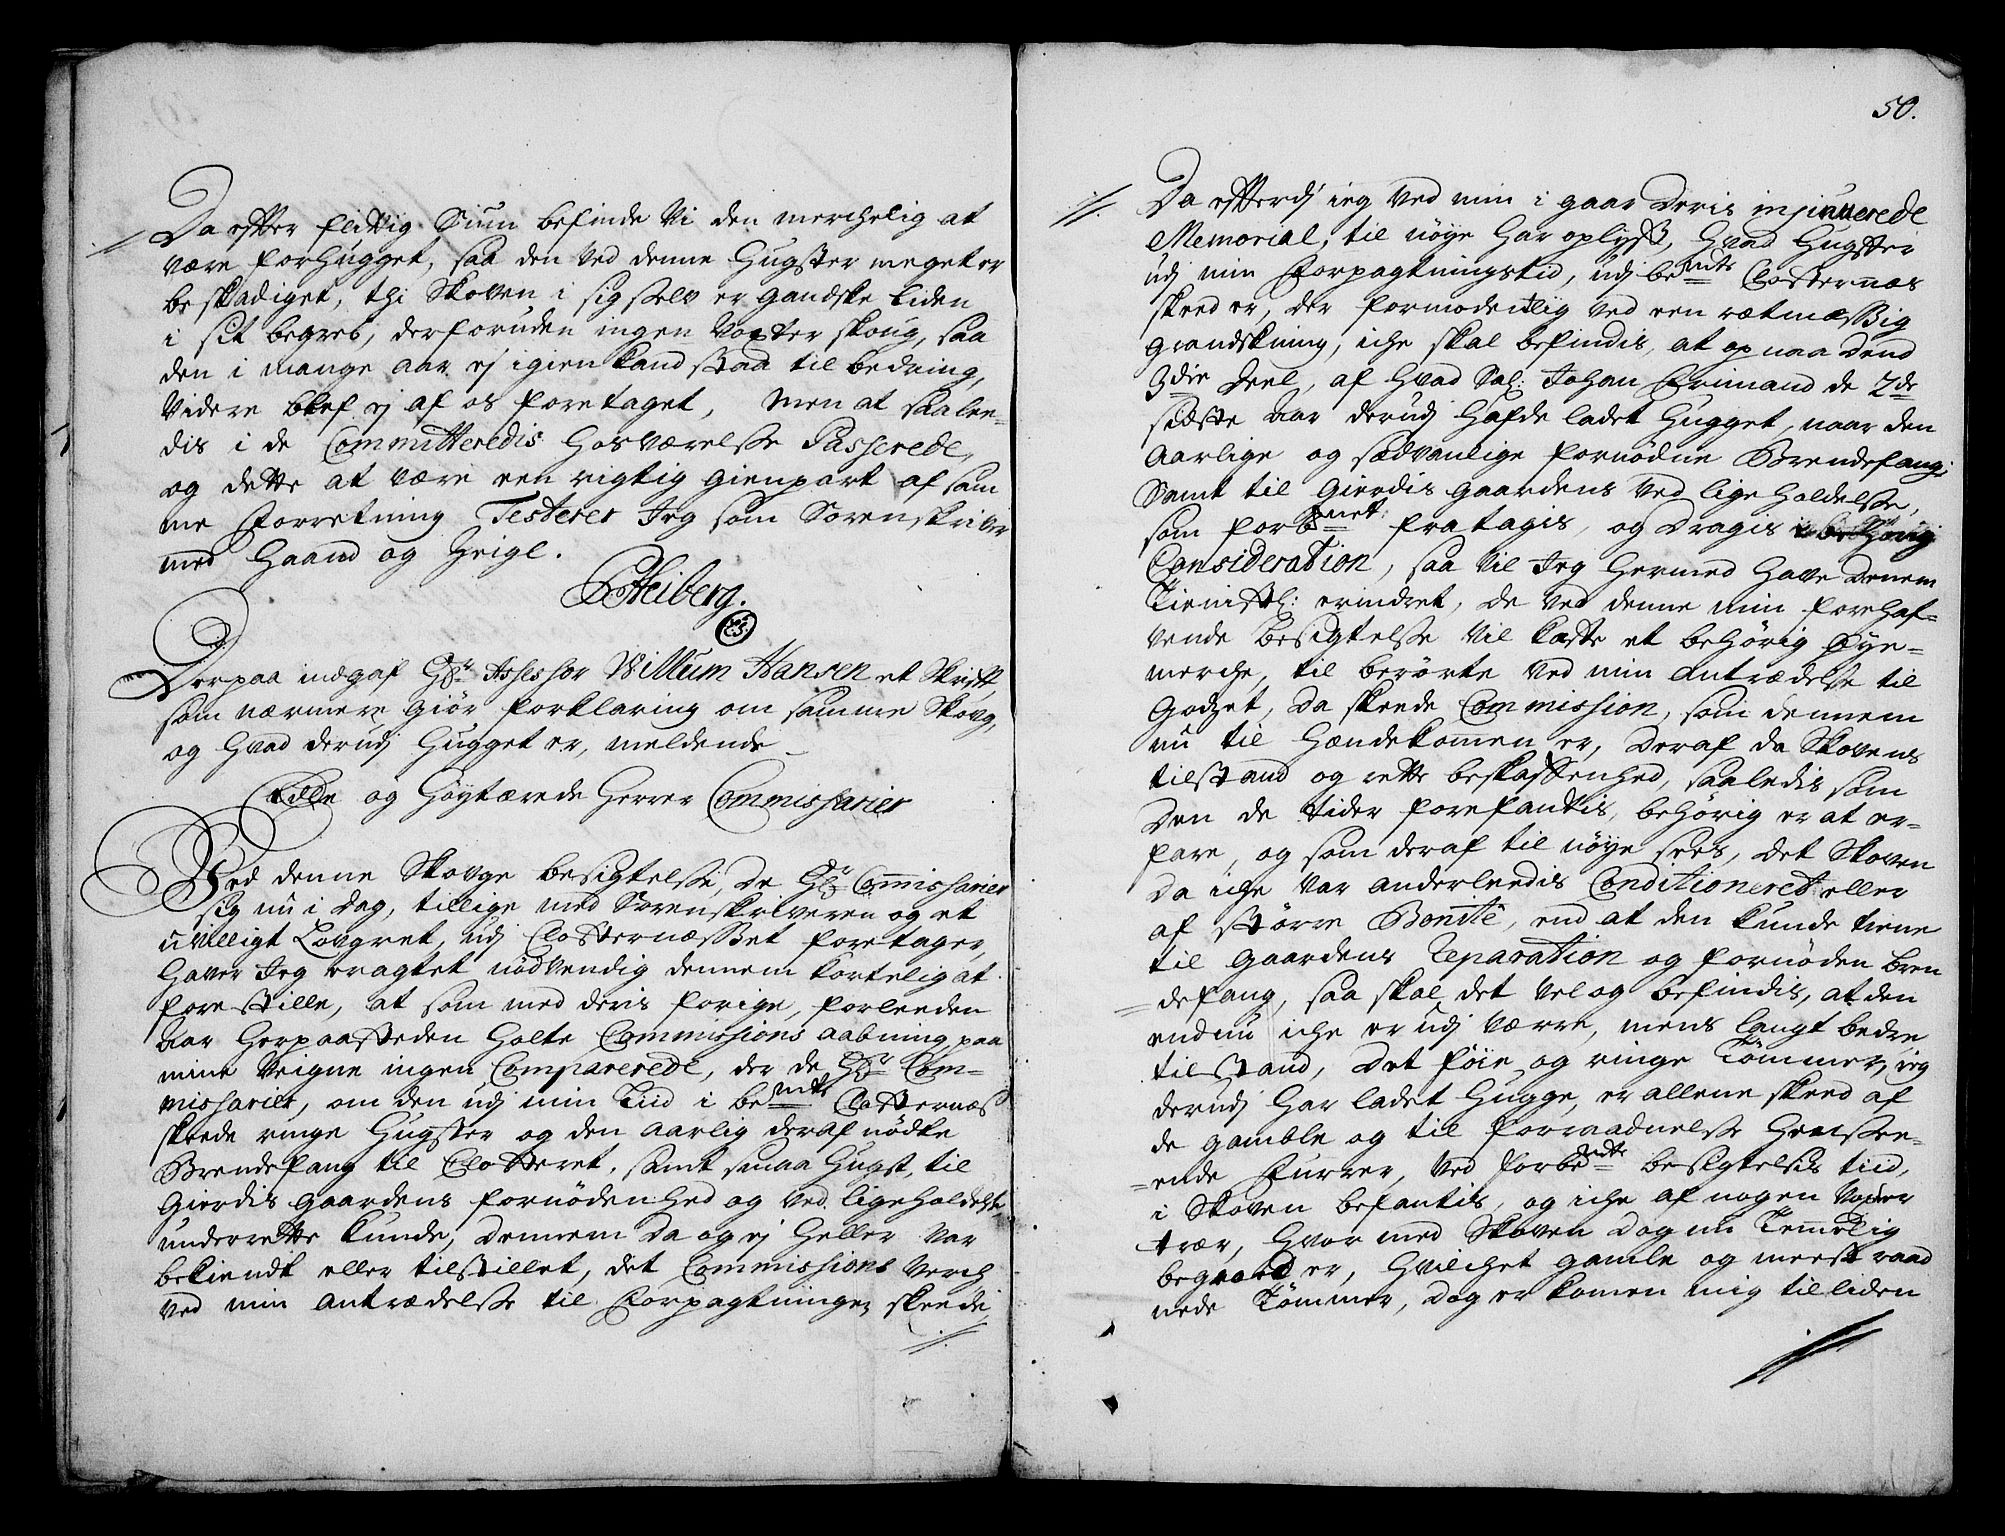 Da efter flittig Siun befinde Vi den merchelig at
være forhugget, saa den ved denne Hugster meget er
beskadiget, thi Skoven i sig selv er gandske liden
i sit begreb, derforuden ingen Voxter skoug, saa
den i mange aar ej igien kand staa til bedring,
Videre blef ej af os foretaget, Men at saalee-
dis i de Committeredis hosværelse Passerede,
og dette at være een rigtig gienpart af sam
me Forretning Testerer Jeg som Sorenskriver
med Haand og Zeigl.
Heiberg.
Derpaa indgaf Hr Assessor Willum Hansen et Skrift,
som nærmere giør forklaring om samme Skovg,
og hvad derudj Hugget er, meldende
Edle og Høytærede Herrer Commissarier
Ved denne Skovgs besigtelse, de Hrr Commissarier
sig nu i dag, tillige med Sorenskriveren og et
uvilligt Lovgret, udj Closternæsset foretager,
haver Jeg eragtet nødvendig dennem kortelig at
forestille, at som med deris forige, forleeden
Aar herpaastæden holte Commissions aabning paa
mine Veigne ingen Comparerede, der de Hrr Com-
missarier, om den udj min Tiid i bemte Closternæs
skeede ringe Hugster og den aarlig deraf nødte
Brendefang til Closteret, samt smaa Hugst, til
Gierdis gaardens fornødenhed og ved ligeholdelse
underrette kunde, dennem da og ej heller var
bekiendt eller tilstillet, det Commissions Verch
ved min antrædelse til Forpagtningen skeede,
50.
Da efterdj ieg ved min i gaar Deris insinuerede
Memorial, til nøye har oplyst, hvad Hugster
udj min Forpagtningstid, udj bemte Closternæs
skeed er, der formodentlig ved een rætmæssig
grandskning, iche skal befindis, at opnaa dend
3die Deel, af hvad Sal: Johan Frimand de 2de
sidste Aar derudj hafde ladet Hugget, naar den
Aarlige og sædvanlige fornødne Brendefang
Samt til Gierdis gaardens ved lige holdelse,
som forbemt fratagis, og dragis i behörig
Consideration, saa vil Jeg hermed have Denem
Tienistl: erindret, de ved denne min forehaf-
vende besigtelse vil kaste et behörig Øye-
merche, til berørte ved min antrædelse til
Godzet, da skeede Commission, som dennem
nu til hændekomen er, deraf da Skovens
tilstand og rette beskaffenhed, saaledis som
Den de tider forefantis, behörig er at er-
fare, og som deraf til nøye sees, det Skoven
da iche var anderleedis Conditioneret eller
af større Bonité, end at den kunde tiene
til gaardens Reparation og fornøden bren
-defang, saa skal det vel og befindis, at den
endnu iche er udj værre, mens langt bedre
tilstand, det føie og ringe Tømmer, ieg
derudj har ladet Hugge, er allene skeed af
de gamble og til forraadnelse henseen-
-ende Furrer, ved forbemte besigtelsis tiid,
i Skoven befantis, og iche af nogen Voxer
trær, hvor med Skoven dog nu temelig
begroed er, hvilchet gamle og meest raad
nede Tømmer, dog er komen mig til liden